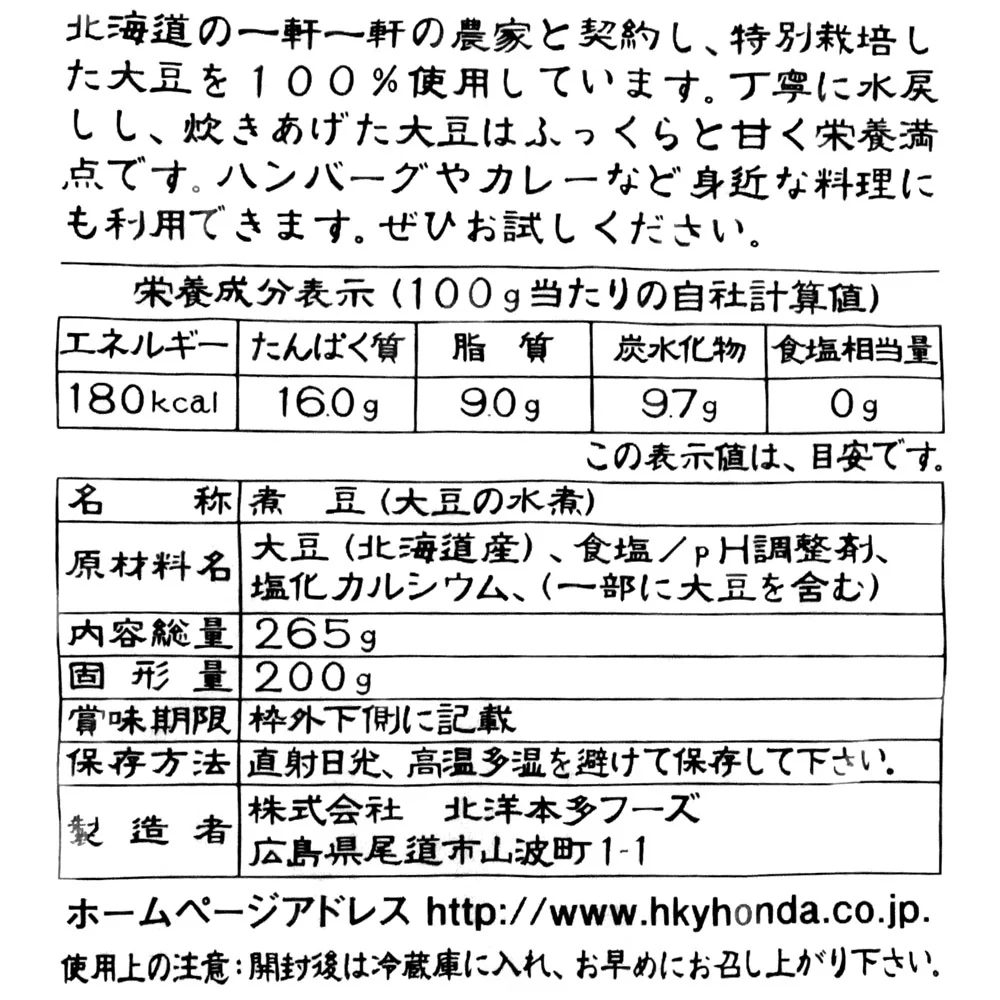 北海道の一軒一軒の農家と契約し、特別栽培し
た大豆を100%使用しています。丁寧に水戻
しし、炊きあげた大豆はふっくらと甘く栄養満
点です。ハンバーグやカレーなど身近な料理に
も利用できます。ぜひお試しください。
栄養成分表示(100g当たりの自社計算値)
エネルギー たんぱく質 脂質 炭水化物 食塩相当量
180kcal 16.0g 9.0g 9.7g 0g
この表示値は、目安です。
名称 煮豆(大豆の水煮)
原材料名 大豆(北海道産)、食塩/pH調整剤、
塩化カルシウム、(一部に大豆を含む)
内容総量 265g
固形量 200g
賞味期限 枠外下側に記載
保存方法 直射日光、高温多湿を避けて保存して下さい。
製造者 株式会社 北洋本多フーズ
広島県尾道市山波町1-1
ホームページアドレス http://www.hkyhonda.co.jp.
使用上の注意:開封後は冷蔵庫に入れ、お早めにお召し上がり下さい。